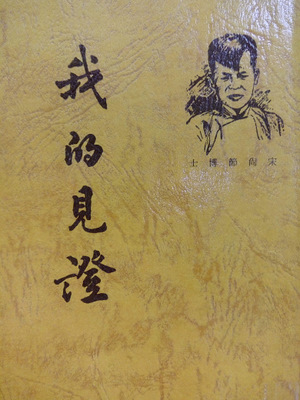 我的見證
宋尚節博士